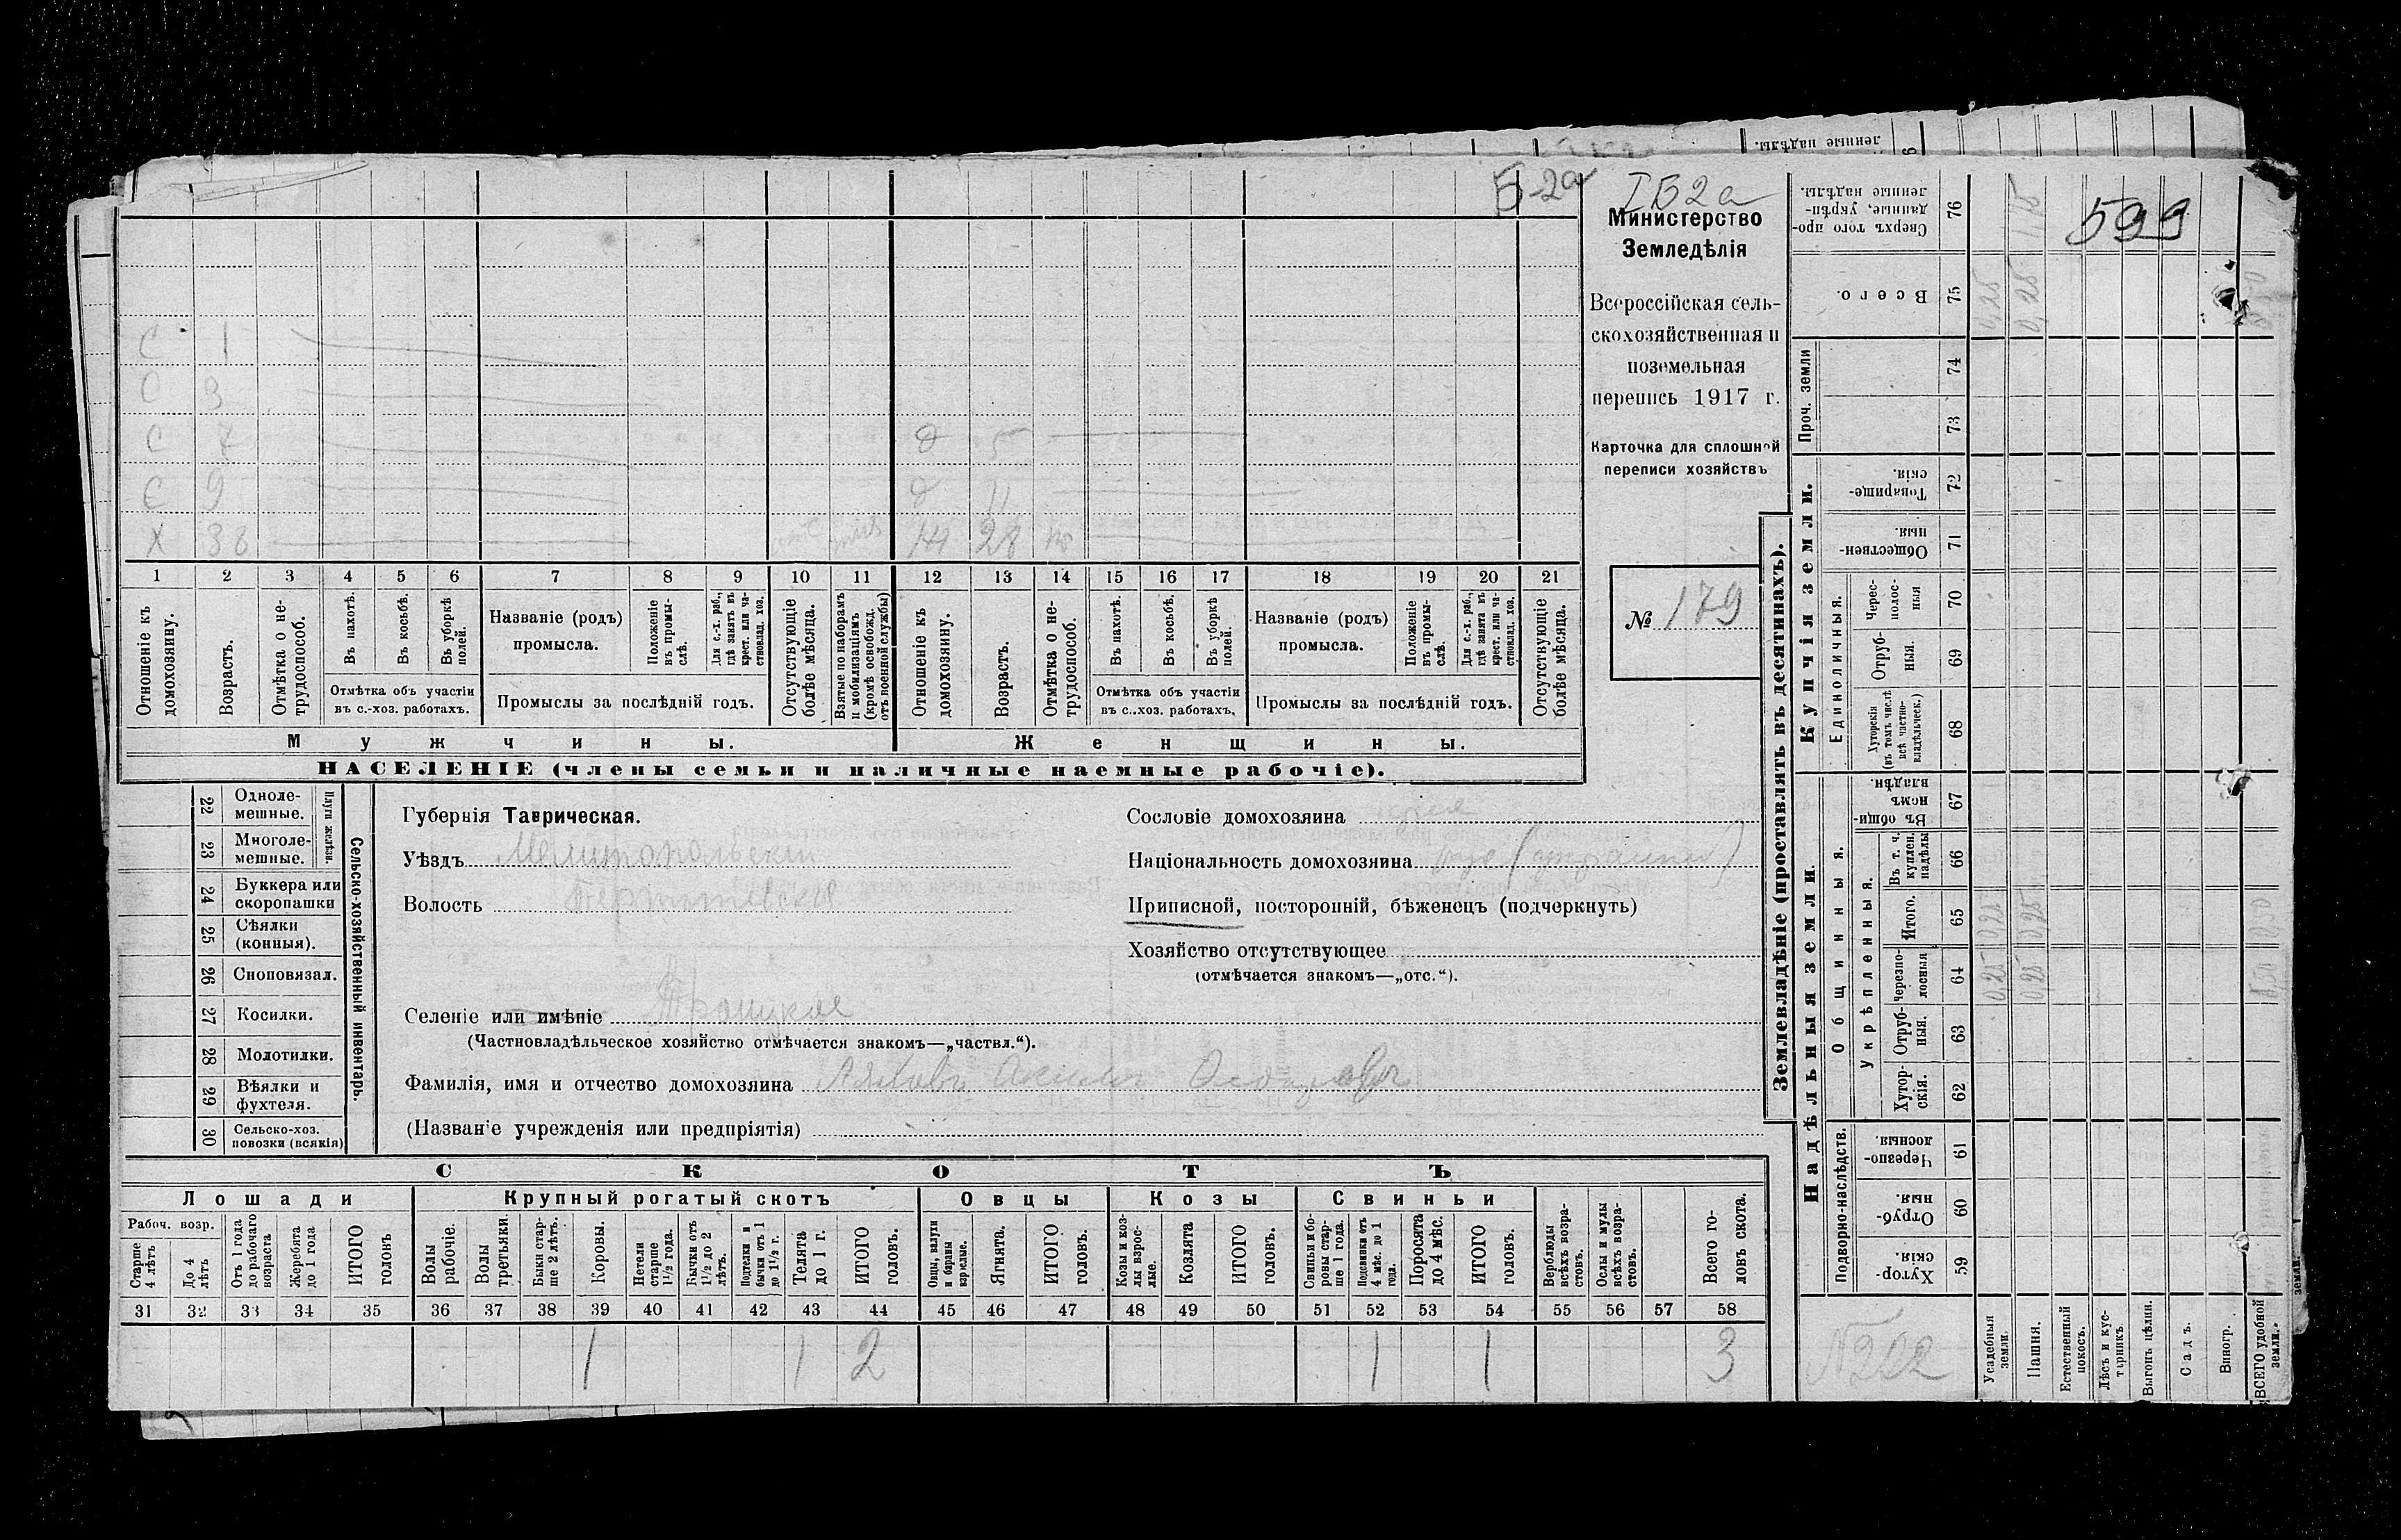 5-2а
IБ2а
599
Министерство
Земледѣлія
Всероссійская сель-
скохозяйственная и
поземельная
перепись 1917 г.
Карточка для сплошной
переписи хозяйствъ
№ 179
С 1
С 3
С 7 д 5
С 9 д 11
Х 38 28
1 2 3 4 5 6 7 8 9 10 11 12 13 14 15 16 17 18 19 20 21
Отношеніе къ домохозяину.
Возрастъ.
Отмѣтка о не-трудоспособ.
Въ пахотѣ.
Въ косьбѣ.
Въ уборкѣ полей.
Отмѣтка объ участіи
въ с.-хоз. работахъ.
Названіе (родъ)
промысла.
Положеніе въ промы-слѣ.
Для с.-х. раб., гдѣ занятъ въ крест. или ча-стновлад. хоз.
Промыслы за послѣдній годъ.
Отсутствующіе болѣе мѣсяца.
Взятые по наборамъ и мобилизаціямъ (кромѣ освобожд. отъ военной службы)
Отношеніе къ домохозяину.
Возрастъ.
Отмѣтка о не-трудоспособ.
Въ пахотѣ.
Въ косьбѣ.
Въ уборкѣ полей.
Отмѣтка объ участіи
въ с.-хоз. работахъ.
Названіе (родъ)
промысла.
Положеніе въ промы-слѣ.
Для с.-х. раб., гдѣ занята въ крест. или ча-стновлад. хоз.
Промыслы за послѣдній годъ.
Отсутствующіе болѣе мѣсяца.
Мужчины. Женщины.
НАСЕЛЕНІЕ (члены семьи и наличные наемные рабочіе).
Сельско-хозяйственный инвентарь.
Плуги желѣзн.
22 Одноле-мешные.
23 Многоле-мешные.
24 Буккера или скоропашки
25 Сѣялки (конныя).
26 Сноповязал.
27 Косилки.
28 Молотилки.
29 Вѣялки и фухтеля.
30 Сельско-хоз. повозки (всякія)
Губернія Таврическая.
Уѣздъ Мелитопольскій
Волость
Селеніе или имѣніе Троицкое
(Частновладѣльческое хозяйство отмѣчается знакомъ—„частвл.“).
Фамилія, имя и отчество домохозяина
(Названіе учрежденія или предпріятія)
Сословіе домохозяина
Національность домохозяина
Приписной, посторонній, бѣженецъ (подчеркнуть)
Хозяйство отсутствующее
(отмѣчается знакомъ—„отс.“).
СКОТЪ
Лошади
Крупный рогатый скотъ
Овцы
Козы
Свиньи
Рабоч. возр.
Старше 4 лѣтъ
До 4 лѣтъ
Отъ 1 года до рабочаго возраста
Жеребята до 1 года
ИТОГО головъ
Волы рабочіе.
Волы третьяки.
Быки стар-ше 2 лѣтъ.
Коровы.
Нетели старше 1½ года.
Бычки отъ 1½ до 2 лѣтъ.
Подтелки и бычки отъ 1 до 1½ г.
Телята до 1 г.
ИТОГО головъ.
Овцы, валухи и бараны взрослые.
Ягнята.
ИТОГО головъ.
Козы и коз-лы взрос-лые.
Козлята
ИТОГО головъ.
Свиньи и бо-ровы стар-ше 1 года.
Подсвинки отъ 4 мѣс. до 1 года.
Поросята до 4 мѣс.
ИТОГО головъ.
Верблюды всѣхъ возра-стовъ.
Ослы и мулы всѣхъ возра-стовъ.
Всего го-ловъ скота.
31 32 33 34 35 36 37 38 39 40 41 42 43 44 45 46 47 48 49 50 51 52 53 54 55 56 57 58
1 1 2 1 1 3
Землевладѣніе (проставлять въ десятинахъ).
Надѣльныя земли.
Купчія земли.
Проч. земли
Подворно-наслѣдств.
Общинныя.
Укрѣпленныя.
Единоличныя.
Сверхъ того про-данные, укрѣп-ленные надѣлы. 76
Всего. 75
74
73
Товарище-скія. 72
Обществен-ныя. 71
Черес-полос-ныя 70
Отруб-ныя. 69
Хуторскія (въ томъ числѣ всѣ частно-владѣльческ.) 68
Въ общин-номъ владѣн. 67
Въ т. ч. куплен. надѣлы 66
Итого. 65
Черезпо-лосныя 64
Отруб-ныя. 63
Хутор-скія. 62
Черезпо-лосныя. 61
Отруб-ныя. 60
Хутор-скія. 59
0,25 0,25
0,25 0,25
0,25 0,25
№202
Усадебныя земли.
Пашня.
Естественный покосъ.
Лѣсъ и кус-тарникъ.
Выгонъ цѣлин.
Садъ.
Виногр.
ВСЕГО удобной земли.